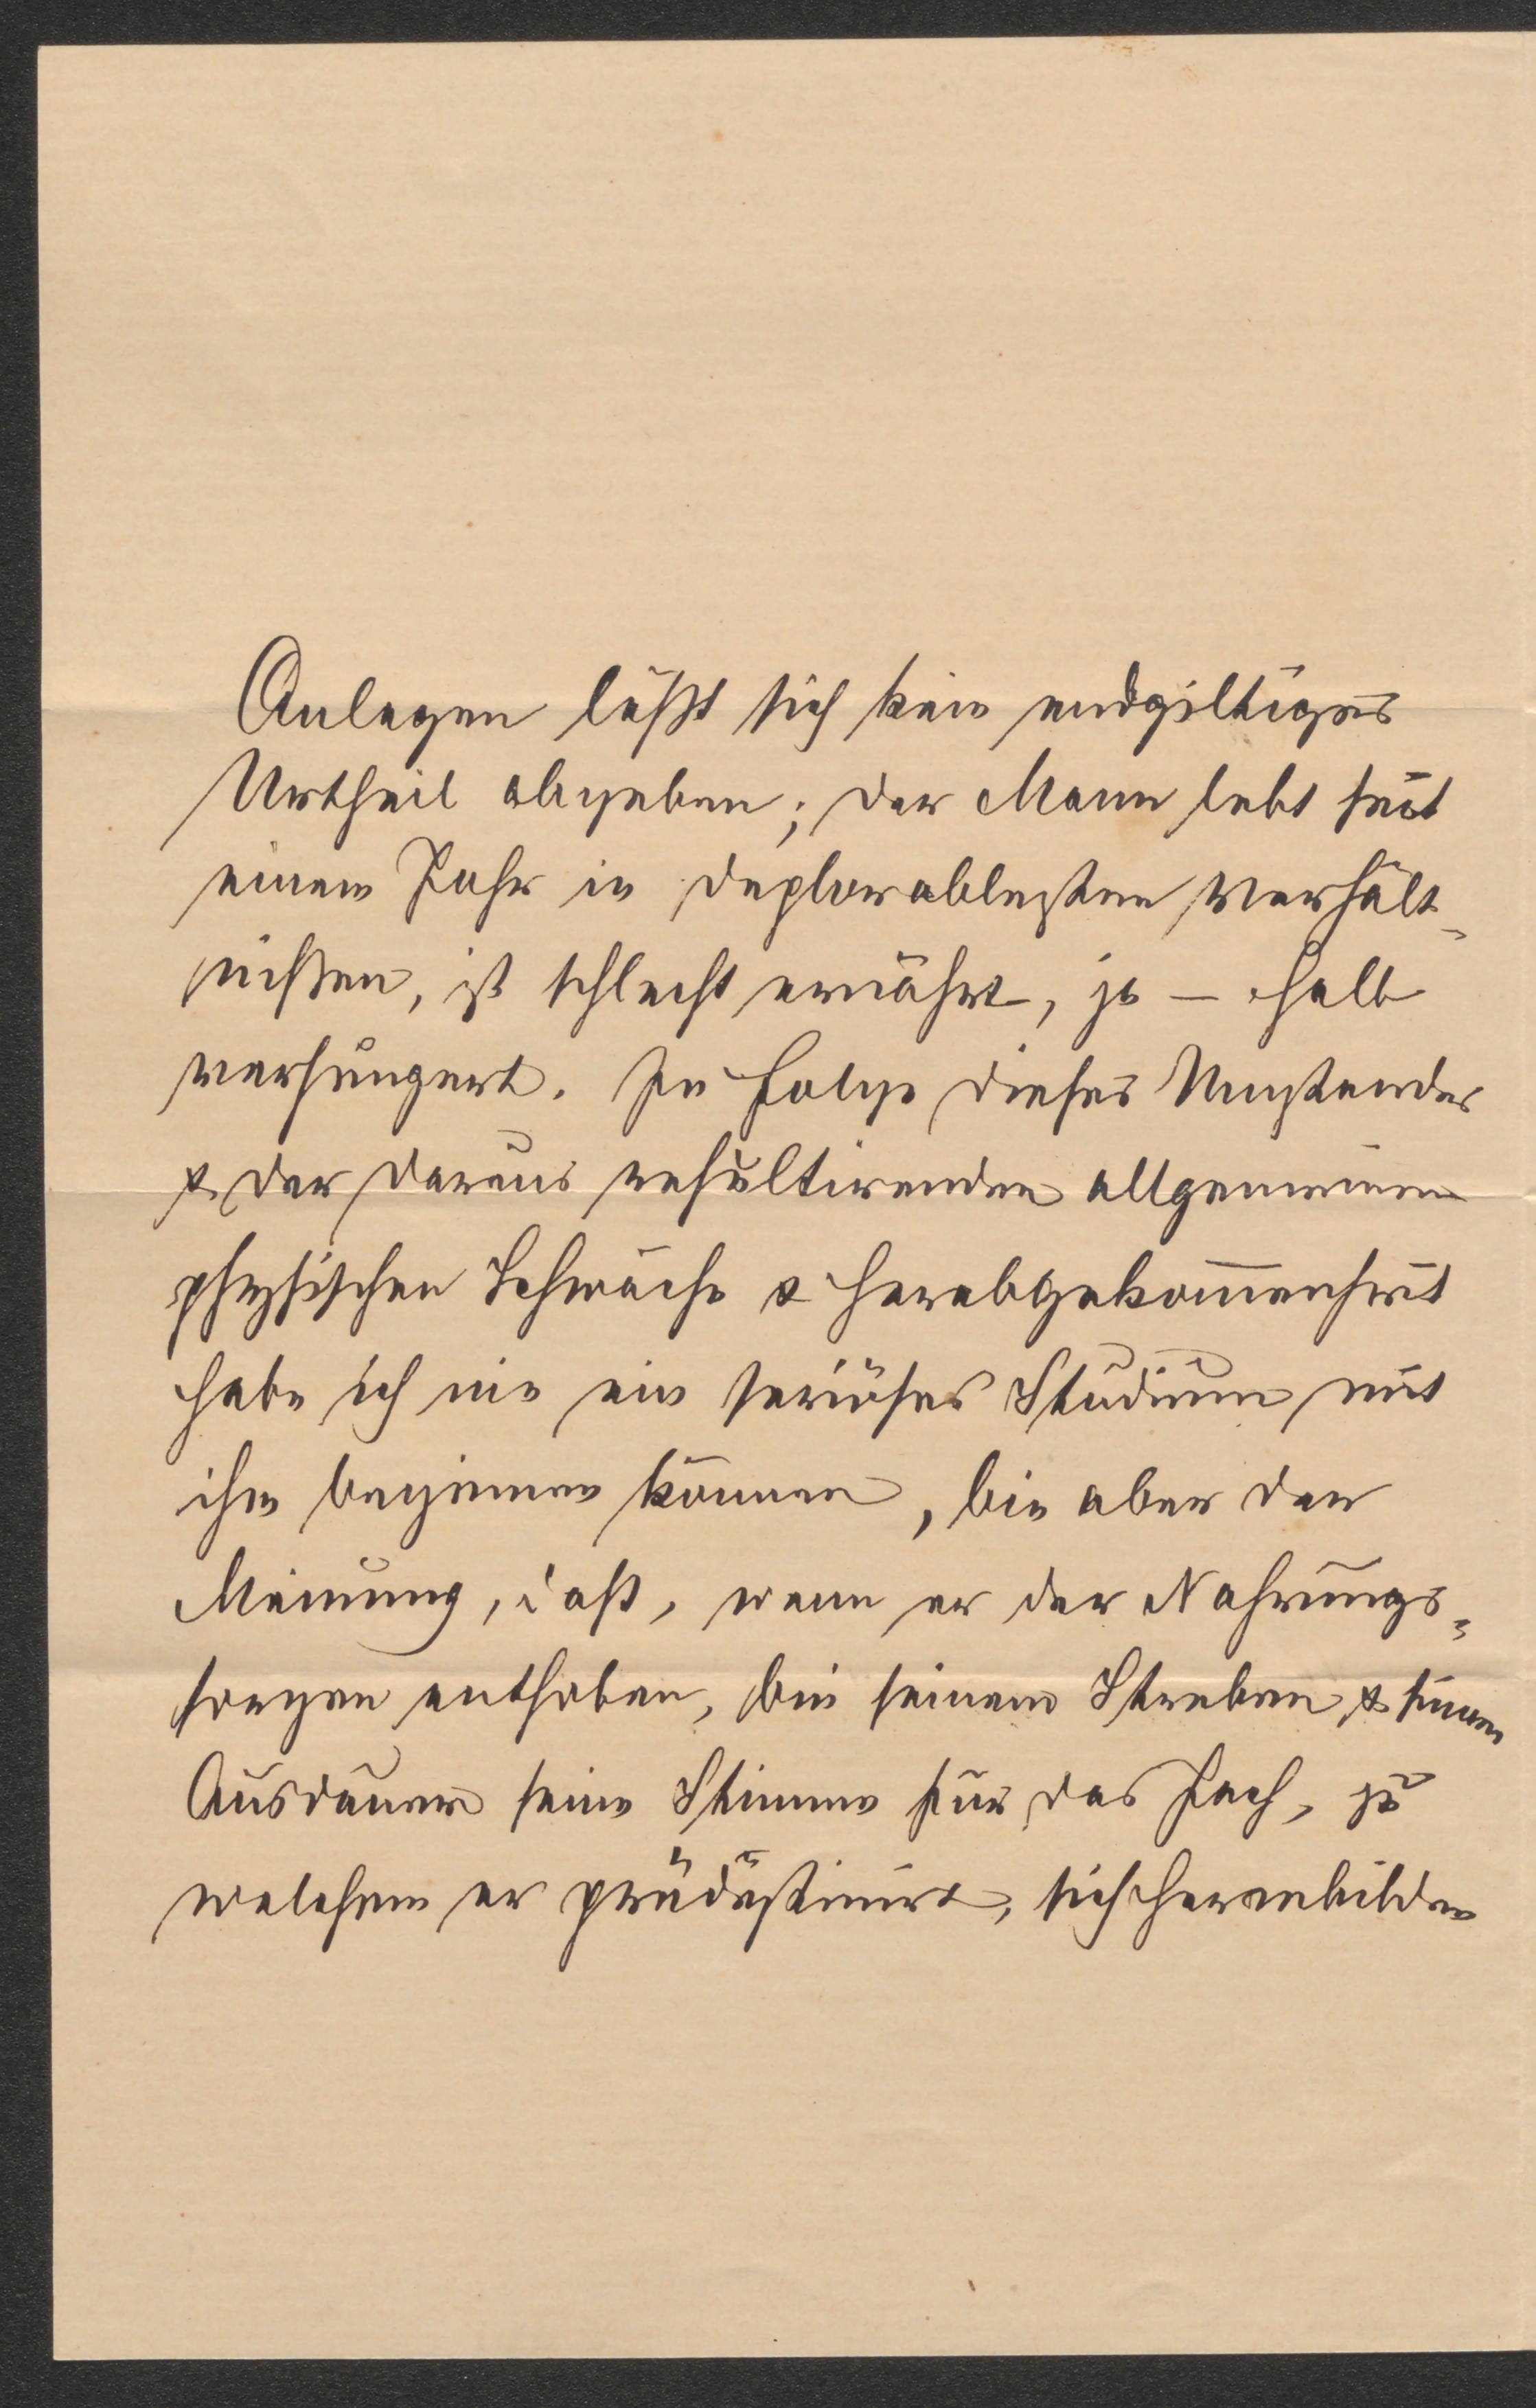 Anlagen läßt sich kein endgiltiges
Urtheil abgeben; der Mann lebt seit
einem Jahr in deplorablesten Verhält-
nißen, ist schlecht ernährt, ja — halb
verhungert. In Folge dieses Umstandes
& der daraus resultirenden allgemeinen
physischen Schwäche & Herabgekom̅enheit
habe ich nie ein seriöses Studium mit
ihm beginnen können, bin aber der
Meinung, daß, wenn er der Nahrungs-
sorgen enthoben, bei seinem Streben & seiner
Ausdauer seine Stimme für das Fach, zu
welchem er prädästinirt, sich heranbilden